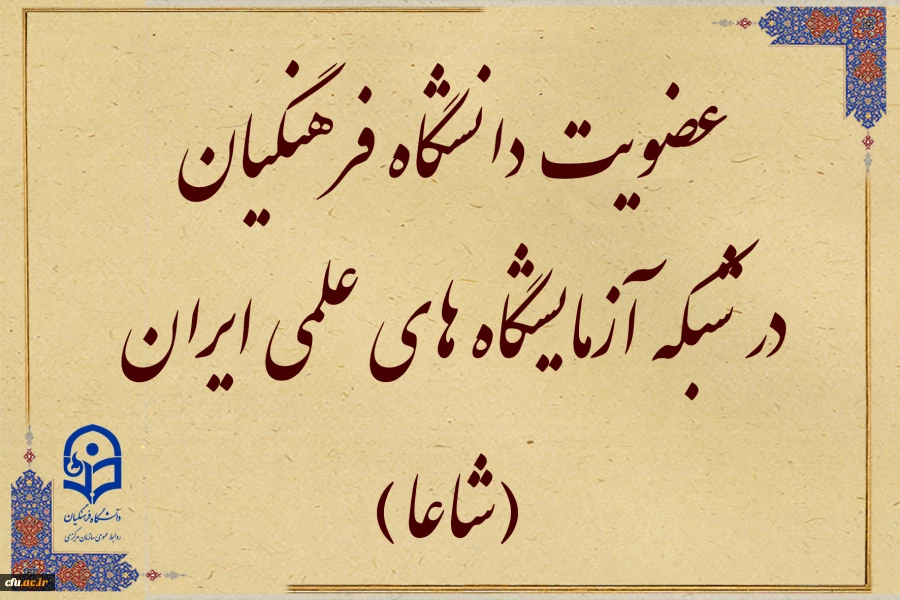 عضویت دانشگاه فرهنگیان
در شبکه آزمایشگاه های علمی ایران
(شاعا)
دانشگاه فرهنگیان
روابط عمومی سازمان مرکزی
cfu.ac.ir